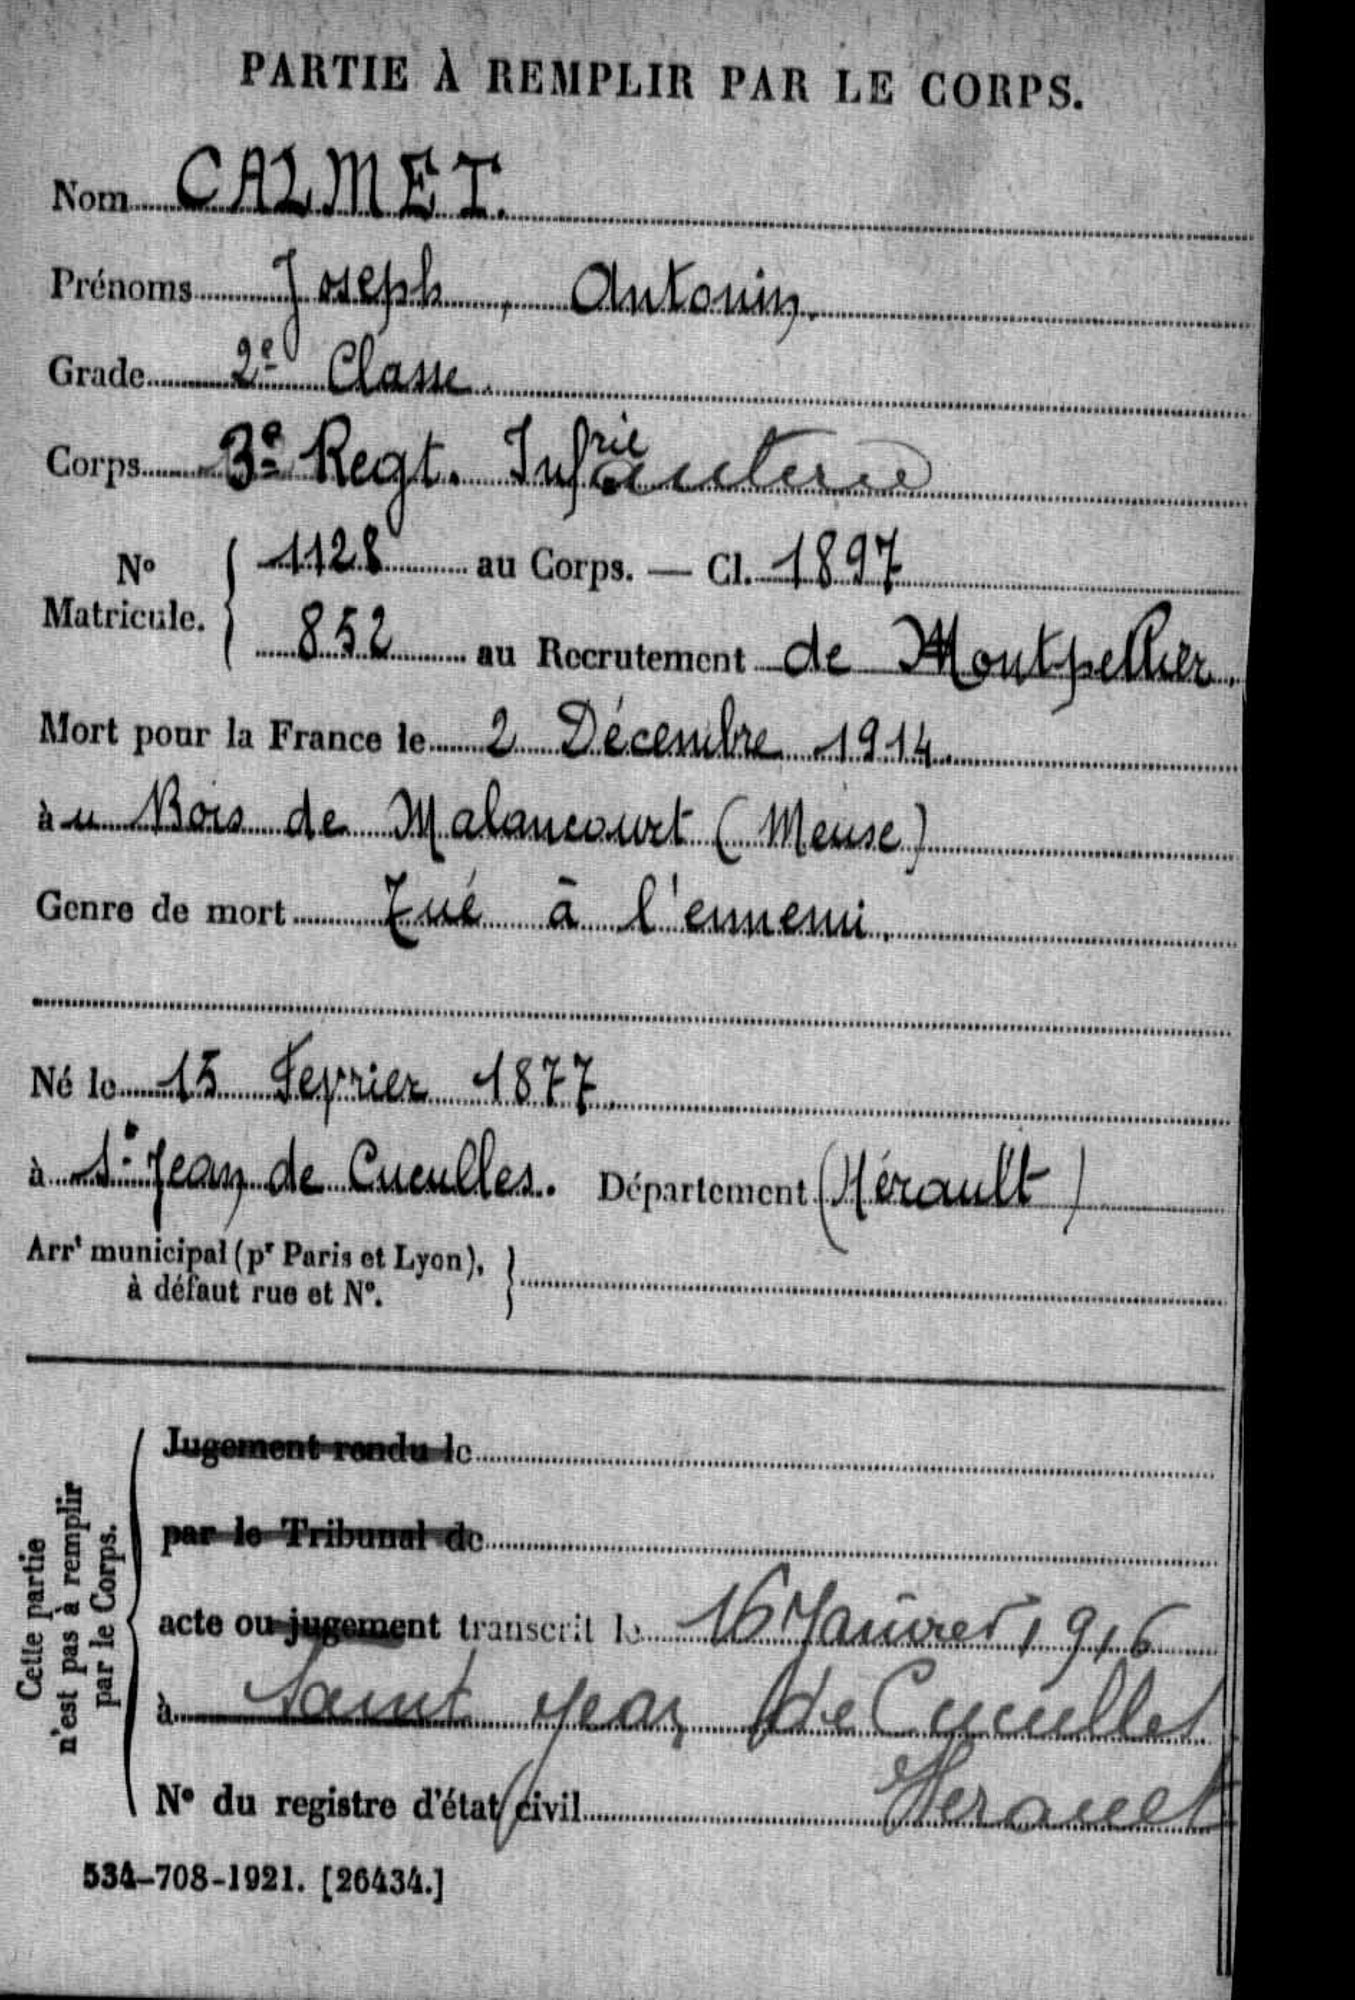 PARTIE À REMPLIR PAR LE CORPS.
Nom CALMET.
Prénoms Joseph, Antonin.
Grade 2e Classe.
Corps 3e Regt. Infrie anterie
No Matricule. 1128 au Corps. — Cl. 1897
852 au Recrutement de Montpellier.
Mort pour la France le 2 Décembre 1914.
à u Bois de Malancourt (Meuse)
Genre de mort Tué à l'ennemi.
Né le 15 Fevrier 1877.
à St Jean de Cuculles. Département (Hérault)
Arrt municipal (pr Paris et Lyon),
à défaut rue et No.
Cette partie
n'est pas à remplir
par le Corps.
Jugement rendu le
par le Tribunal de
acte ou jugement transcrit le 16 Janvier 1916
à Saint Jean de Cuculles
No du registre d'état civil Herault
534-708-1921. [26434.]